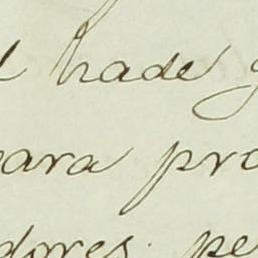 hade
para pro
dores. pe